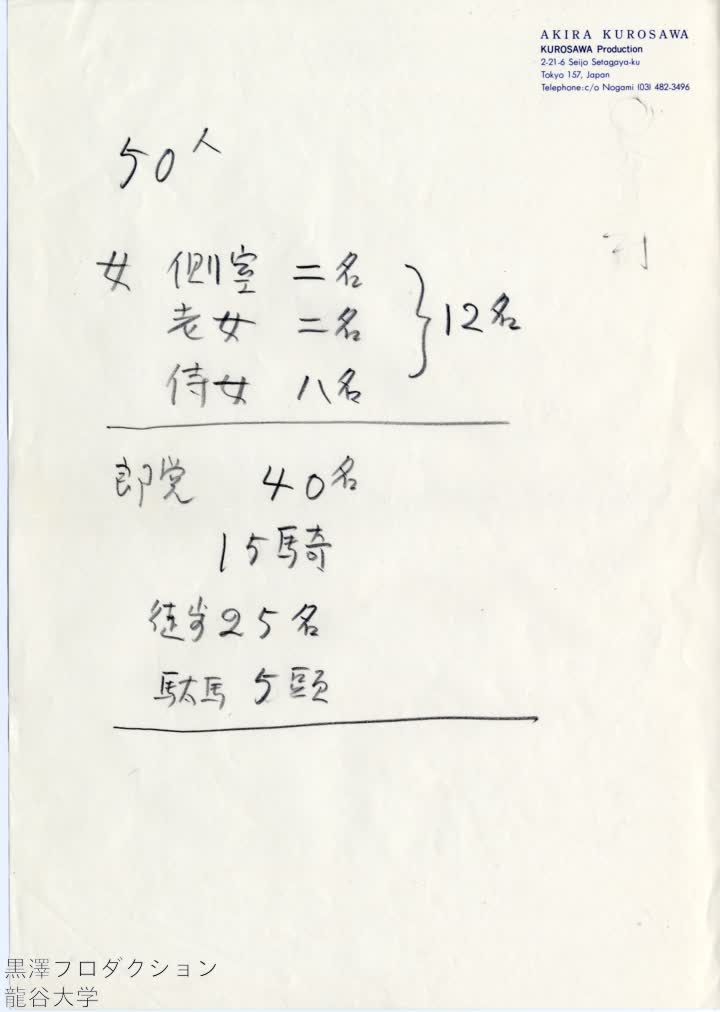 AKIRA KUROSAWA
KUROSAWA Production
2-21-6 Seijo Setagaya-ku
Tokyo 157, Japan
Telephone:c/o Nogami (03) 482-3496
50人
女 側室 二名
老女 二名
侍女 八名
12名
郎党 40名
15騎
徒歩25名
駄馬 5頭
黒澤プロダクション
龍谷大学